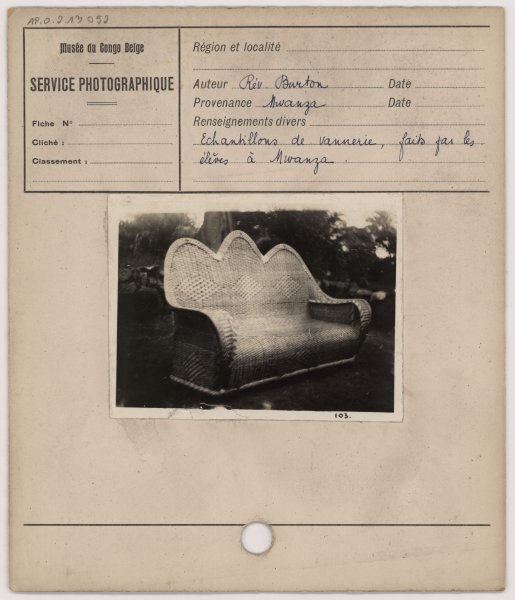 AP.0.2.13052
Musée du Congo Belge
SERVICE PHOTOGRAPHIQUE
Fiche N°
Cliché :
Classement :
Région et localité
Auteur Rév. Burton Date
Provenance Mwanza Date
Renseignements divers
Echantillons de vannerie, faits par les
élèves à Mwanza.
103.